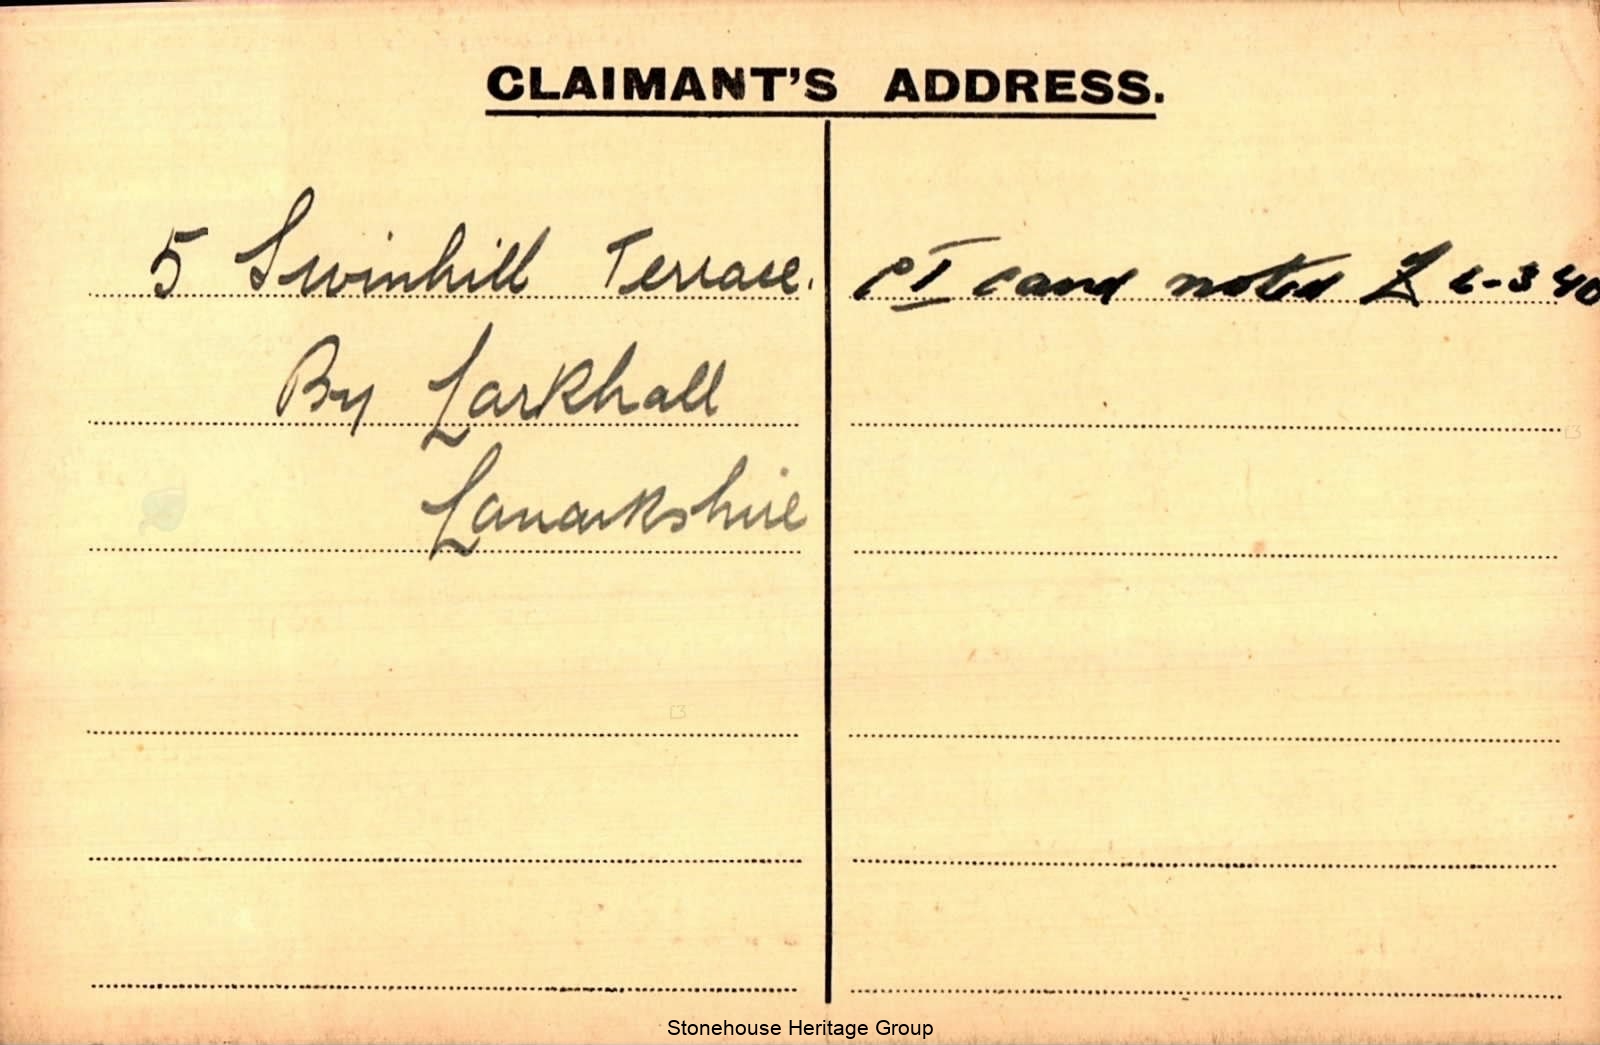 CLAIMANT'S ADDRESS.
5 Swinhill Terrace.
By Larkhall
Lanarkshire
PI card noted
Stonehouse Heritage Group